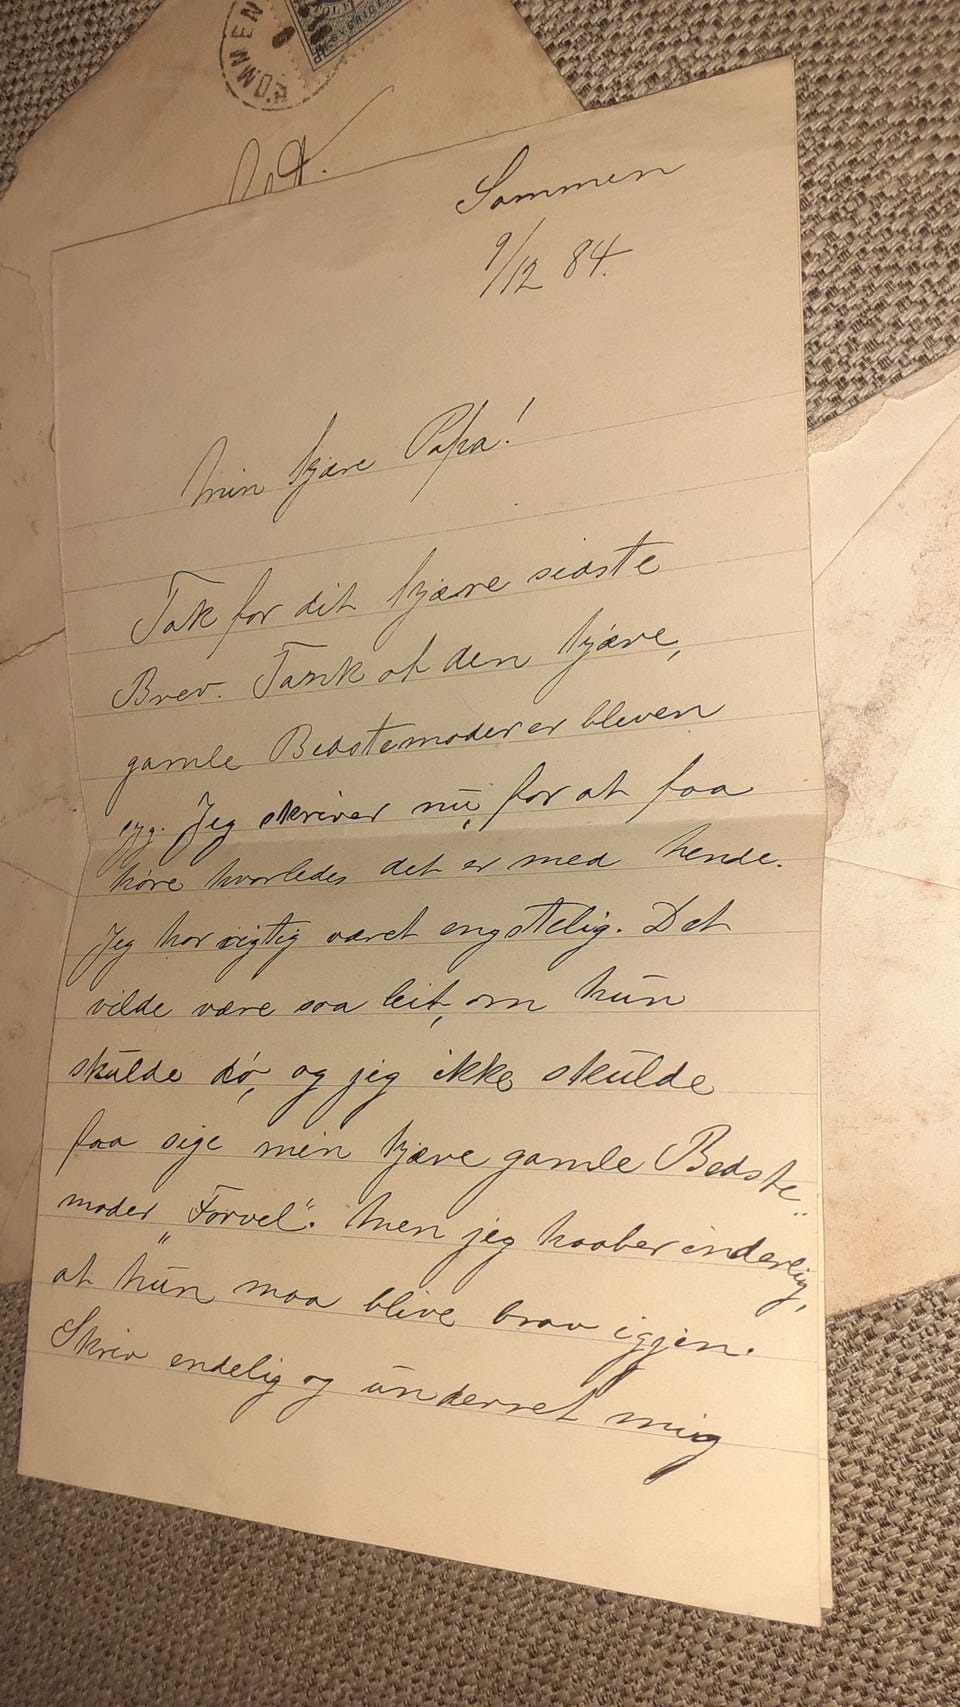 SOMMEN
Sommen
9/12 84.
Min kjære Papa!
Tak for dit kjære sidste
Brev. Tænk at den kjære,
gamle Bedstemoder er bleven
syg. Jeg skriver nu, for at faa
høre hvorledes det er med hende.
Jeg har rigtig været engstelig. Det
vilde være saa leit, om hun
skulde dø, og jeg ikke skulde
faa sige min kjære gamle Bedste„
moder „Farvel“. Men jeg haaber inderlig,
at hun maa blive brav igjen.
Skriv endelig og underret mig